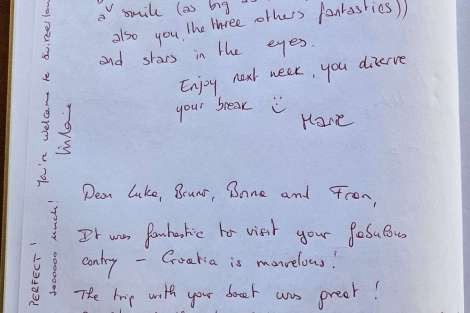 a smile (as big as
also you, the three others fantastics))
and stars in the eyes.
Enjoy next week, you diserve
your break
Marie
Dear Luke, Bruno, Borna and Fran,
It was fantastic to visit your fabulous
contry – Croatia is marvelous!
The trip with your boat was great!
PERFECT!
soooooo much! You're welcome to Switzerland